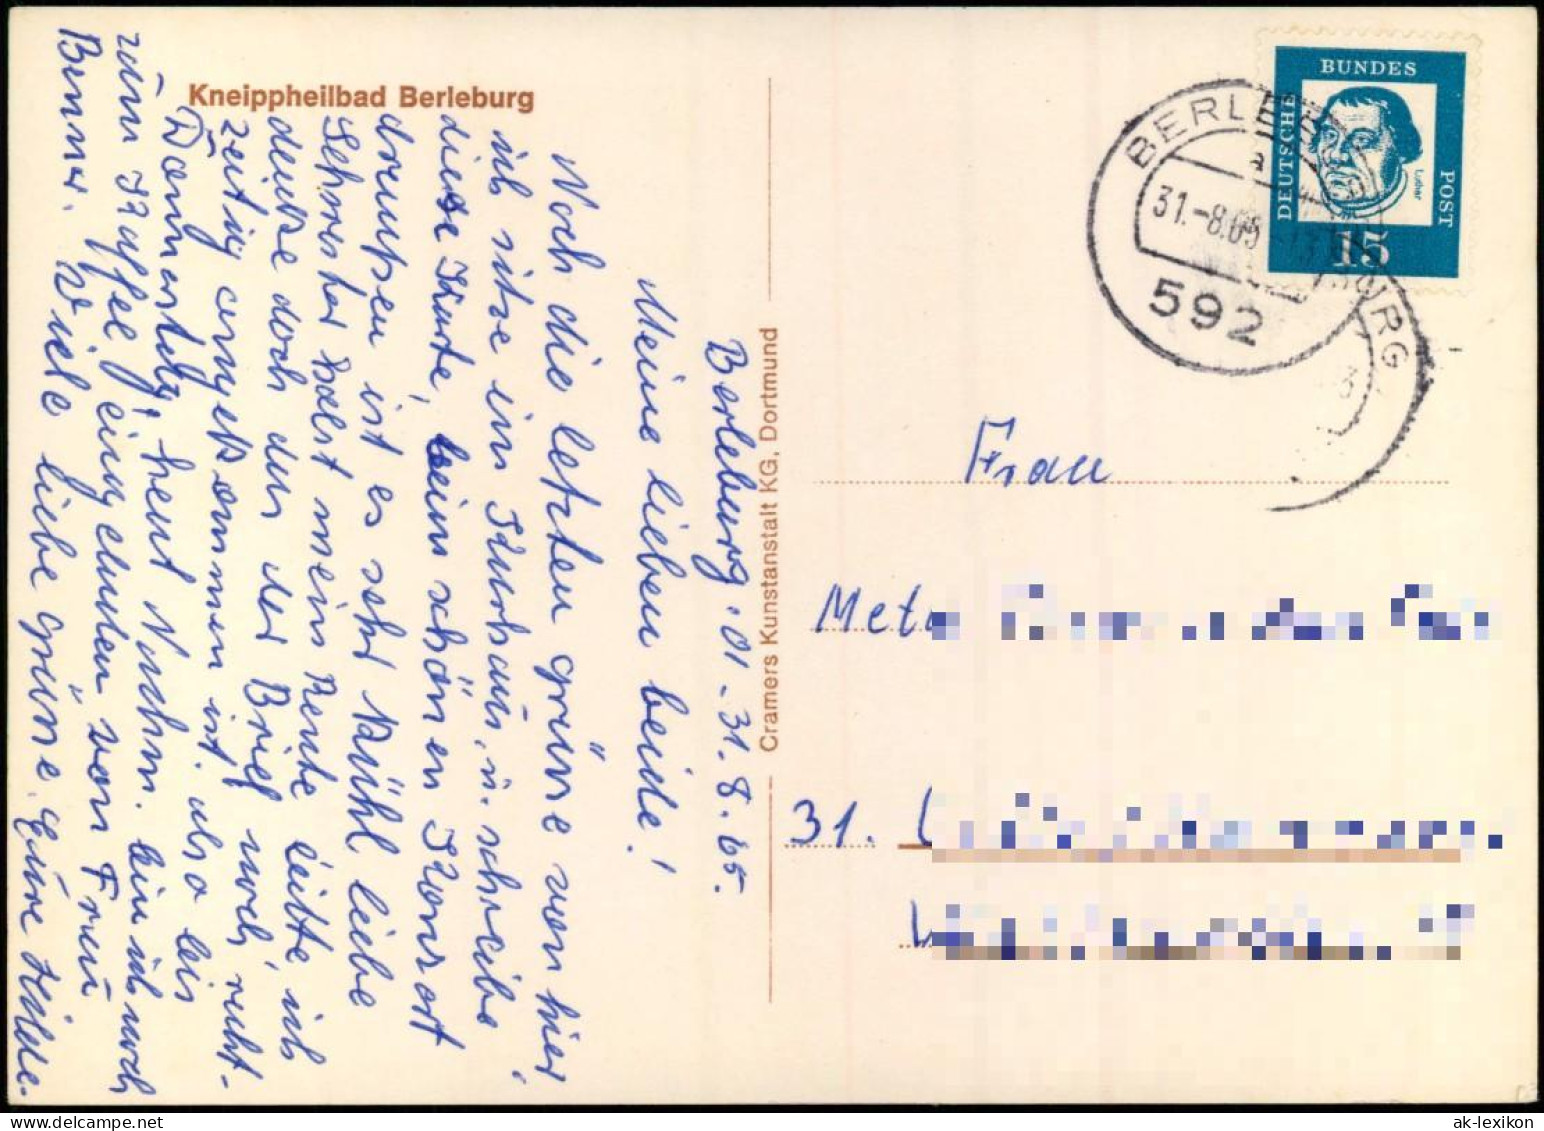 Kneippheilbad Berleburg
Berleburg. d 1 - 31. 8. 65.
Meine lieben beide!
Noch die letzten grüne von hier
ich sitze im Kurhaus, u. schreibe
diese Karte, beim schönen Konsort
draußen ist es sehr kühl liebe
Schwester hast mein Rente
denke doch das der Brief noch recht-
zeitig angekommen ist. also bis
Donnerstag, heut Nachm. bin ich noch
zum Kaffee eingeladen von Frau
Benner. Viele liebe grüne. Eure Hilde.
Cramers Kunstanstalt KG, Dortmund
DEUTSCHE BUNDES POST
Luther
15
BERLEBURG
a
31.-8.65-13
592
Frau
Meta
31.
ak-lexikon